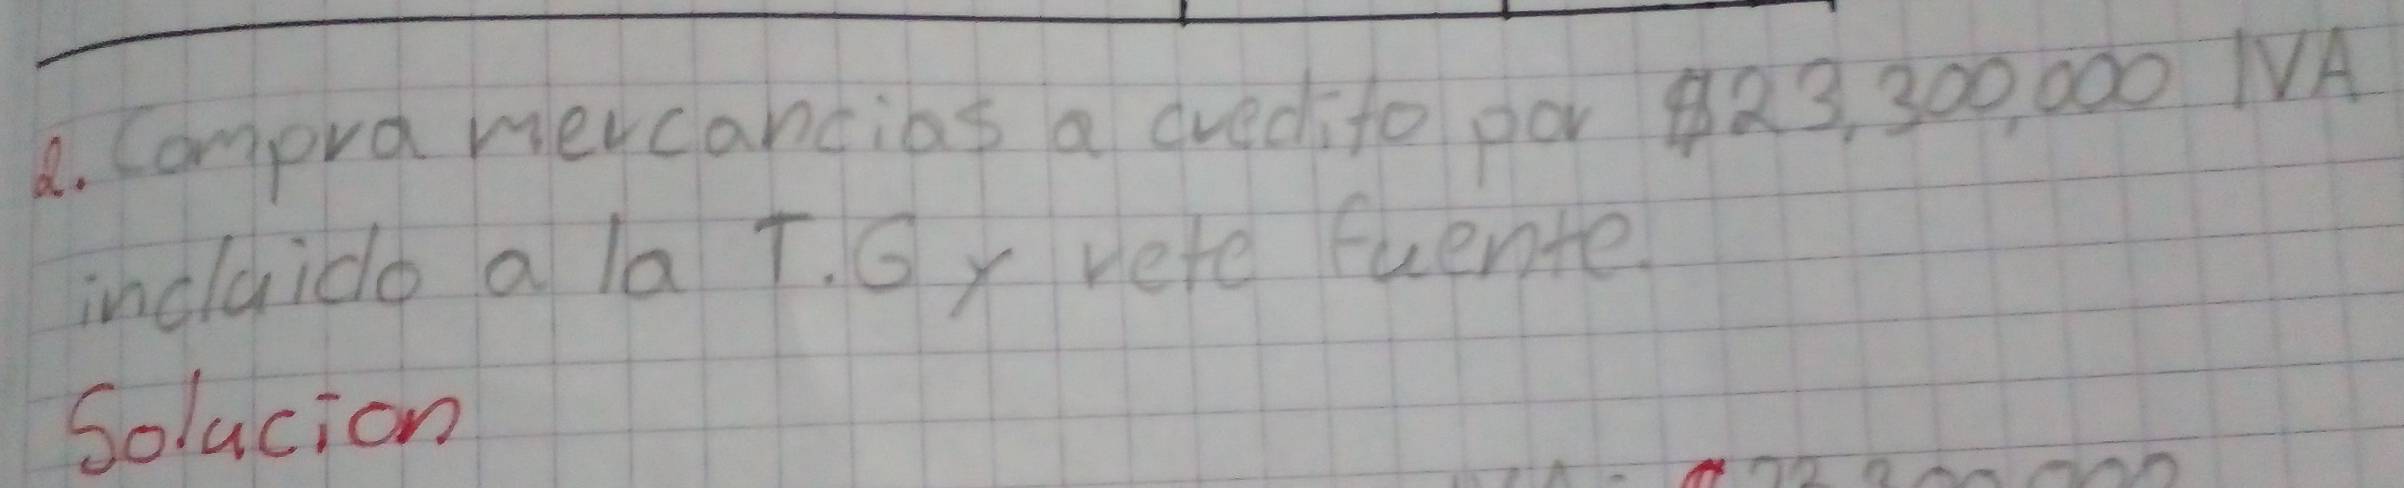 2. Compra mercancias a credito por $23,300,000 IVA
incluido a la T.G y rete fuente.
Solucion